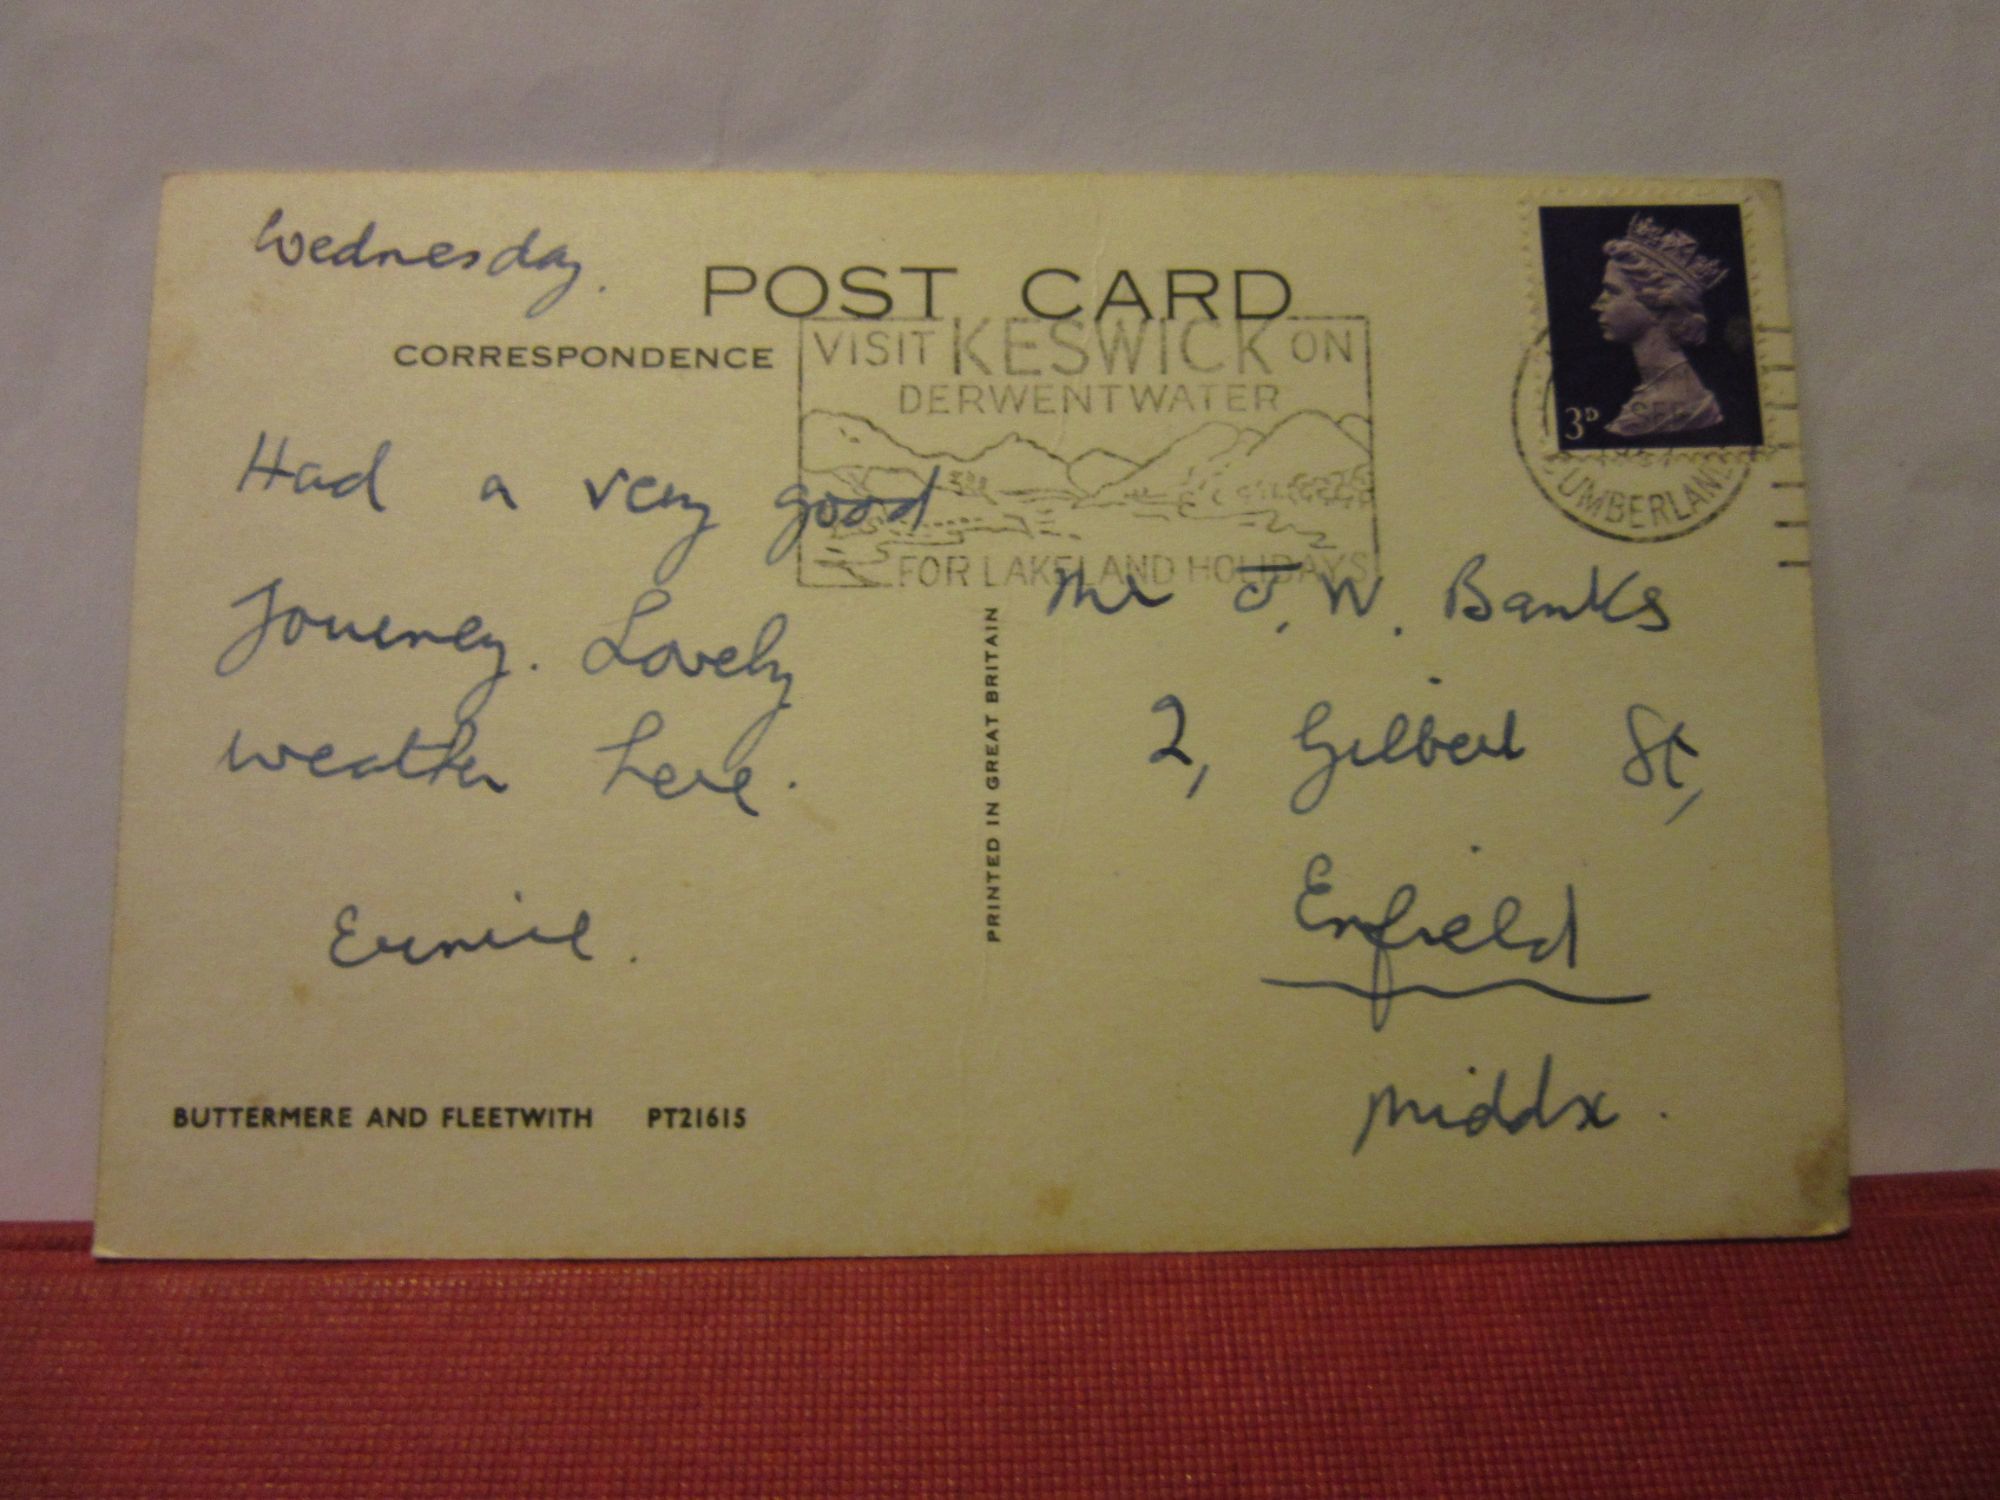 Wednesday.
POST CARD
CORRESPONDENCE
VISIT KESWICK ON
DERWENTWATER
FOR LAKELAND HOLIDAYS
3D
SEP
CUMBERLAND
Had a very good
Journey. Lovely
weather here.
Ernie.
BUTTERMERE AND FLEETWITH PT21615
PRINTED IN GREAT BRITAIN
Mr J. W. Banks
2, Gilbert St,
Enfield
Middx.